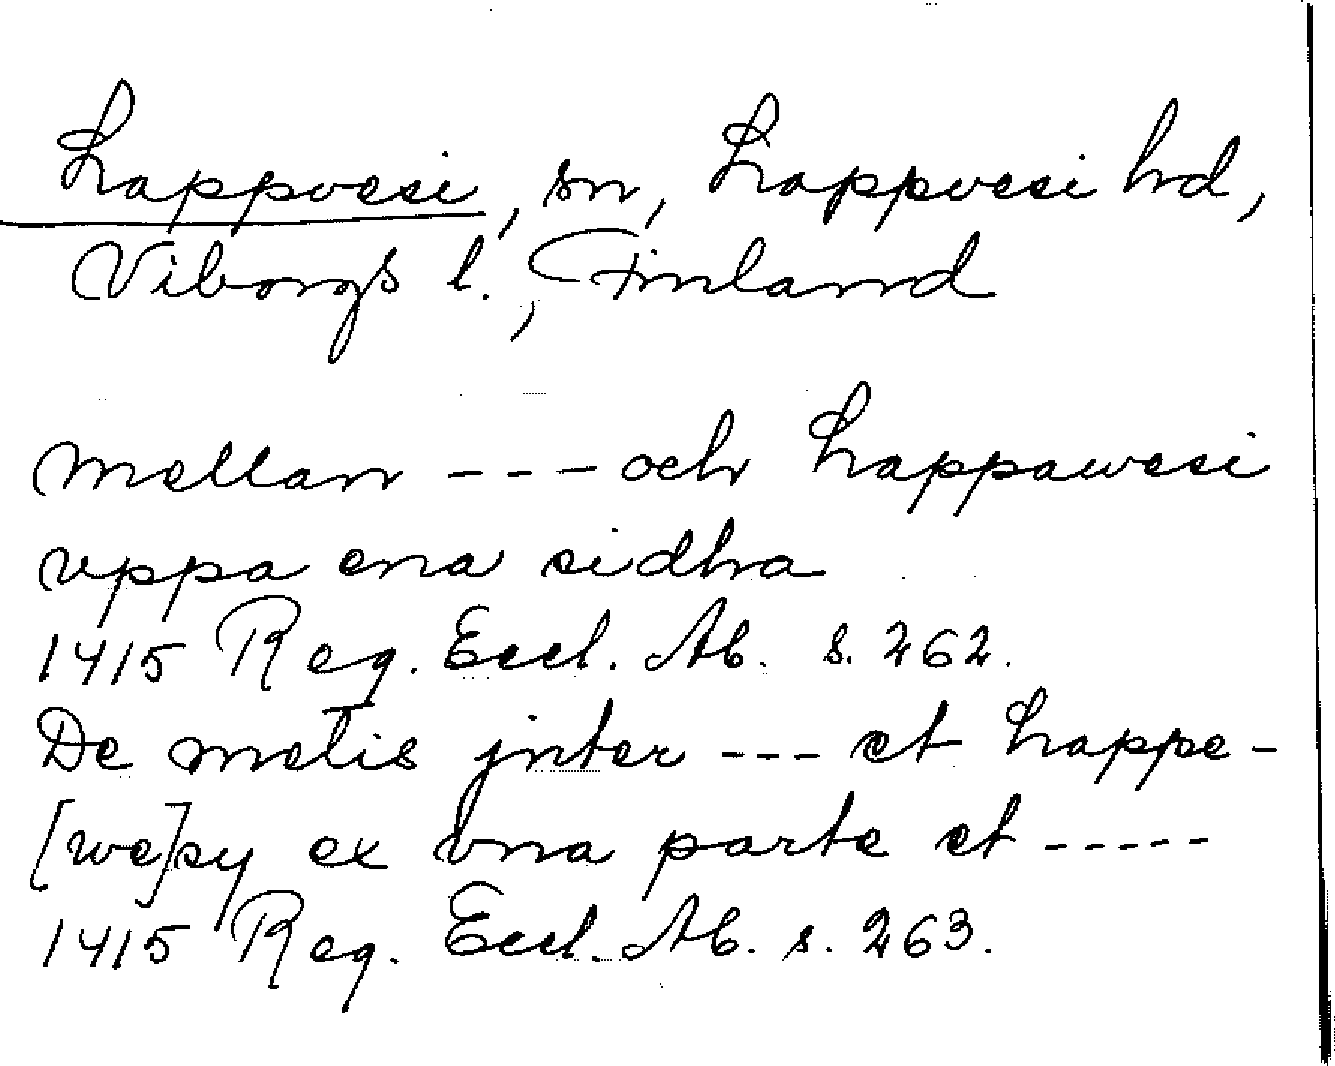 Lappvesi, sn, Lappvesi hd,
Viborgs l., Finland
mellan --- och Lappawesi
vppa ena sidha
1415 Reg. Eccl. Ab. s. 262.
De metis jnter --- et Lappe-
[we]sy ex vna parte et -----
1415 Reg. Eccl. Ab. s. 263.